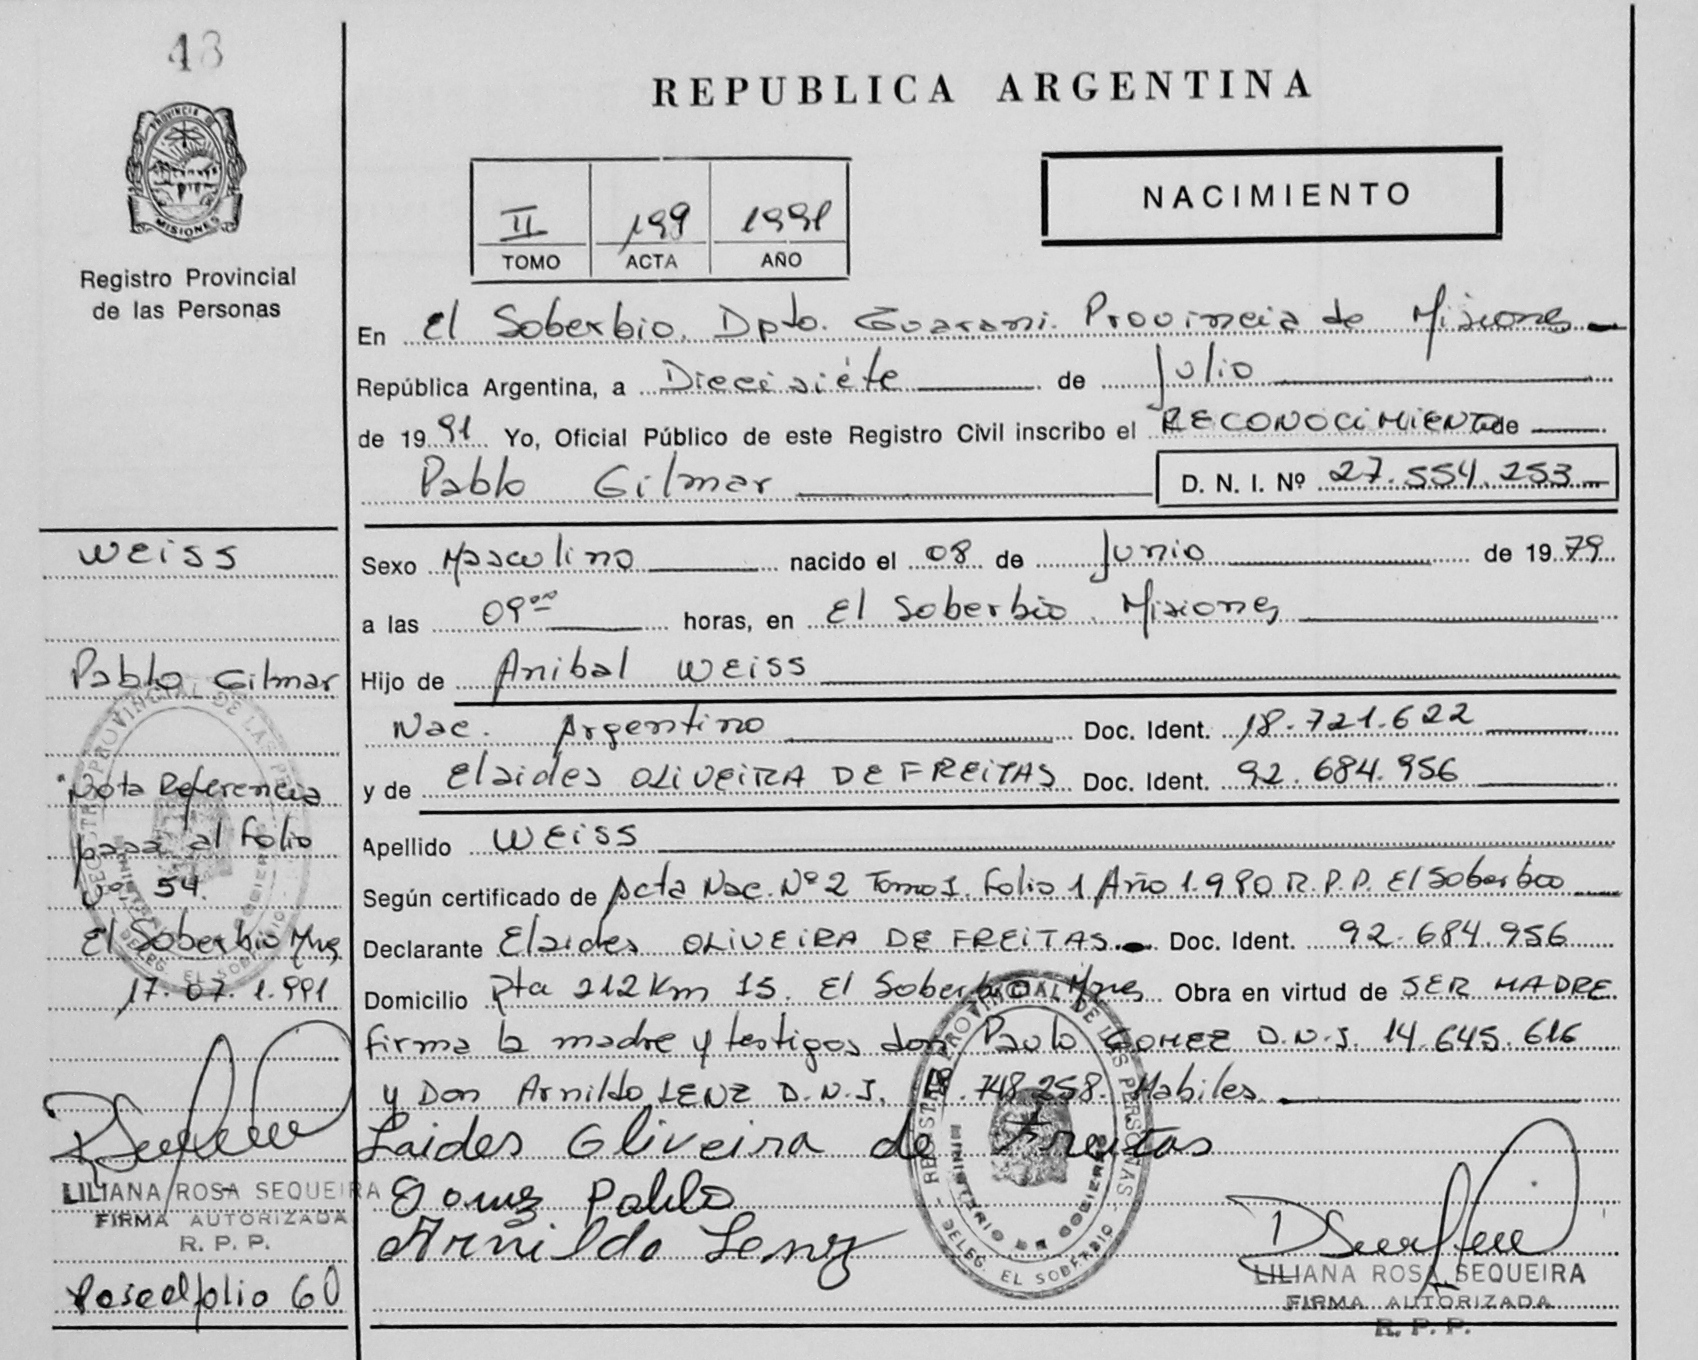 48
PROVINCIA DE
MISIONES
Registro Provincial
de las Personas
REPUBLICA ARGENTINA
II 199 1991
TOMO ACTA AÑO
NACIMIENTO
En El Soberbio, Dpto. Guarani. Provincia de Misiones
República Argentina, a Diecisiéte de Julio
de 1991 Yo, Oficial Público de este Registro Civil inscribo el RECONOCIMIENTO de
Pablo Gilmar D. N. I. Nº 27.554.253
Sexo Masculino nacido el 08 de Junio de 1979
a las 09⁰⁰ horas, en El Soberbio. Misiones
Hijo de Anibal WEISS
Nac. Argentino Doc. Ident. 18.721.622
y de Elaides OLIVEIRA DE FREITAS Doc. Ident. 92.684.956
Apellido WEISS
Según certificado de Acta Nac. Nº 2 Tomo I. Folio 1 Año 1.980 R.P.P. El Soberbio
Declarante Elaides OLIVEIRA DE FREITAS Doc. Ident. 92.684.956
Domicilio Rta 212 Km 15. El Soberbio Mnes Obra en virtud de SER MADRE
firma la madre y testigos don Paulo GOMEZ D.N.I. 14.645.616
y Don Arnildo LENZ D.N.I. 18.748.258. Habiles
Laides Oliveira de Freitas
Gomez Pablo
Arnildo Lenz
REGISTRO PROVINCIAL DE LAS PERSONAS
MINISTERIO DE GOBIERNO
DELEG. EL SOBERBIO
LILIANA ROSA SEQUEIRA
FIRMA AUTORIZADA
R. P. P.
WEISS
Pablo Gilmar
"Nota Referencia
pasa al Folio
Nº 54.
El Soberbio Mnes
17.07.1.991
LILIANA ROSA SEQUEIRA
FIRMA AUTORIZADA
R. P. P.
Pase al folio 60